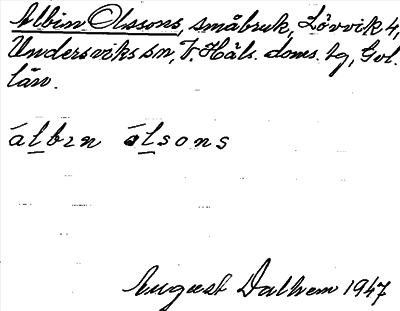 Albin Olssons, småbruk, Lövvik 4,
Undersviks sn, V. Häls. doms. tg, Gvl.
län.
álbin ólsons
August Dalhem 1947